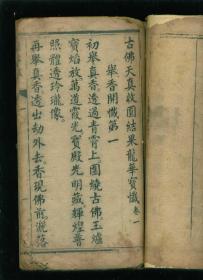 古佛天真收圓結果龍華寶懺卷一
舉香開懺第一
初舉真香透過青霄上圍繞古佛玉爐
寶焰放萬道霞光寶殿光明藏輝煌普
照體透玲瓏像
再舉真香透出劫外去香現佛前瀧落